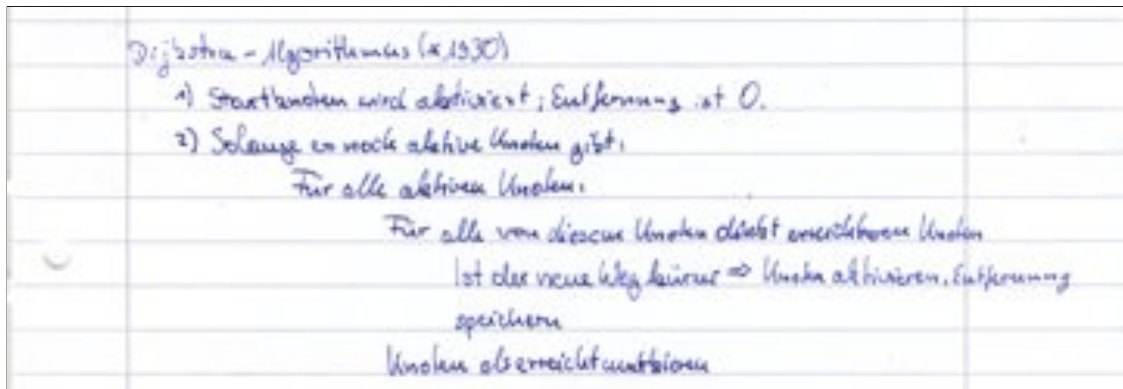 Dijkstra-Algorithmus (*1930)
1) Startknoten wird aktiviert; Entfernung ist 0.
2) Solange es noch aktive Knoten gibt:
Für alle aktiven Knoten:
Für alle von diesem Knoten direkt erreichbaren Knoten
Ist der neue Weg kürzer ⇒ Knoten aktivieren, Entfernung
speichern
Knoten als erreicht markieren